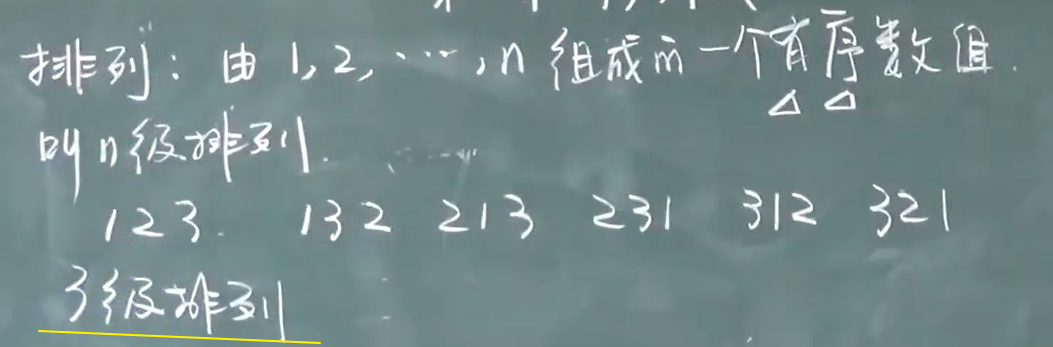 排列：由1,2,…,n组成的一个有序数组.
叫n级排列.
123. 132 213 231 312 321
3级排列